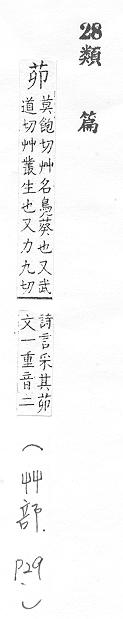 28類篇
茆
莫飽切艸名鳧葵也又武
道切艸叢生也又力九切
詩言采其茆
文一重音二
(艸部. P29.)